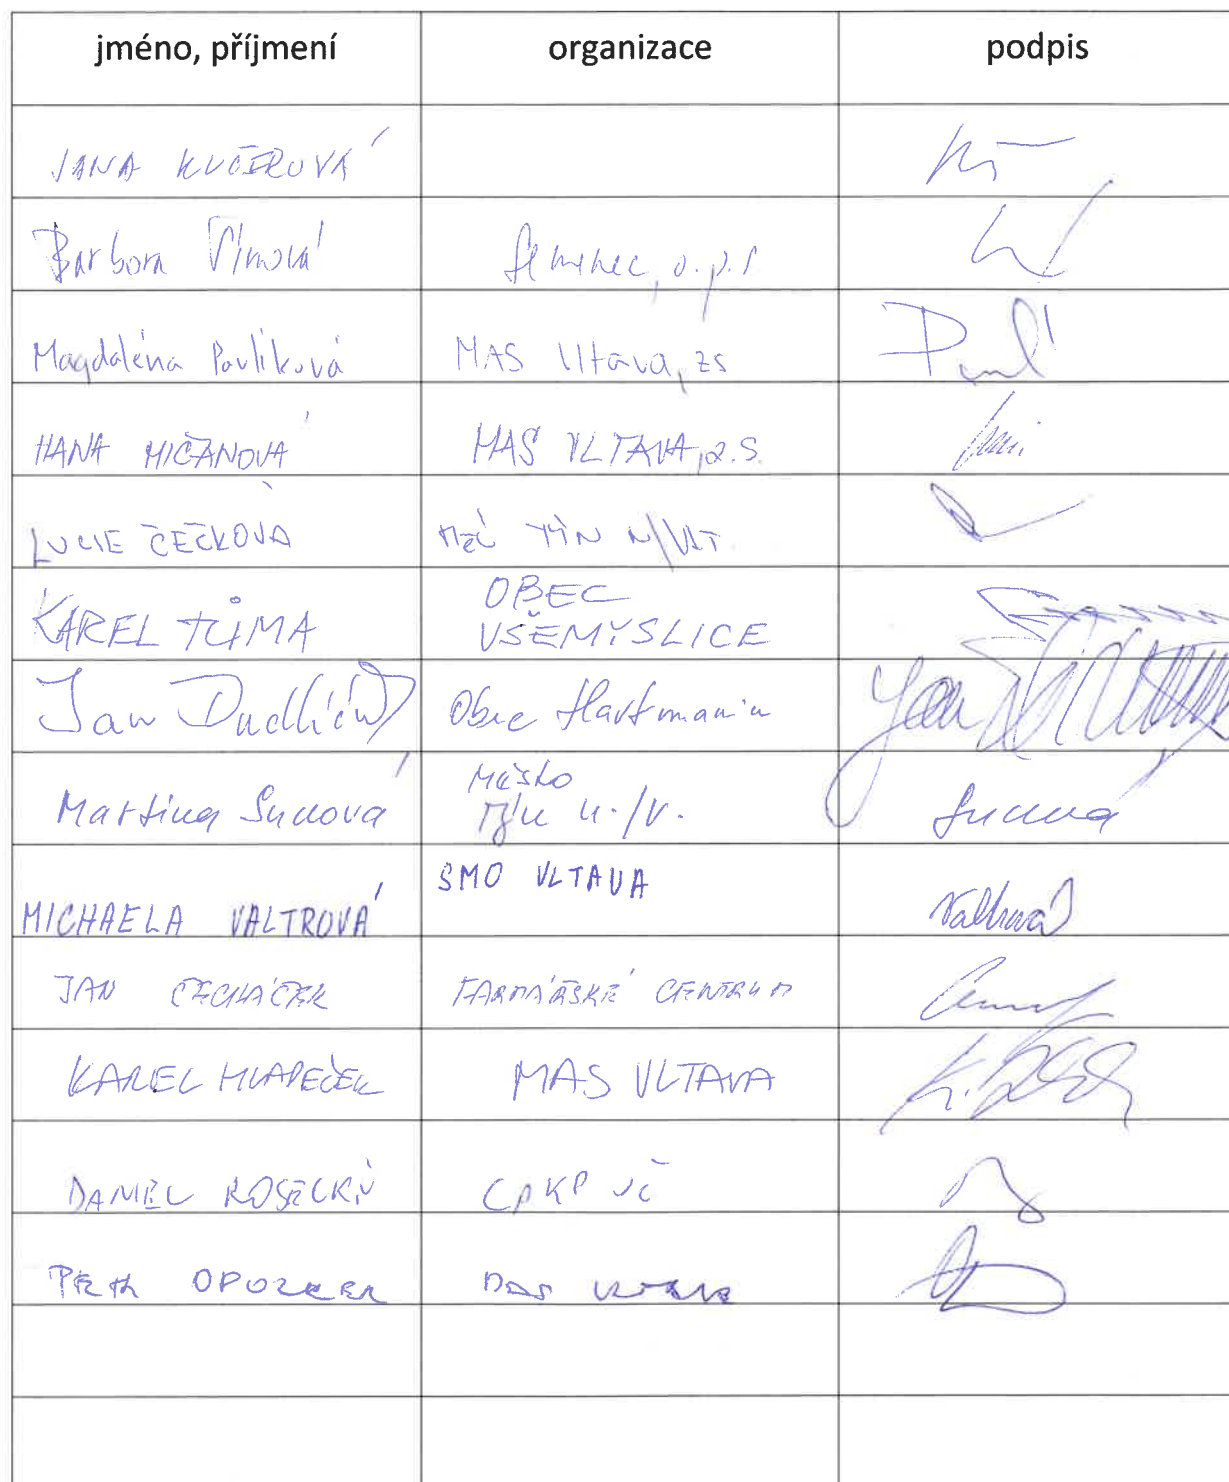 jméno, příjmení organizace podpis
JANA KUČEROVÁ
Barbora Šímová Semenec, o.p.s
Magdaléna Pavlíková MAS Vltava, zs
HANA MIČANOVÁ MAS VLTAVA, z.s.
LUCIE ČEČKOVÁ TÝN N/VLT.
KAREL TŮMA OBEC
VŠEMYSLICE
Jan Obec Hartmanice
Martina Sucová Město
Týn n./V. Sucová
MICHAELA VALTROVÁ SMO VLTAVA Valtrová
JAN ČECHÁČEK FARMÁŘSKÉ CENTRUM
KAREL MLÁDEČEK MAS VLTAVA
DANIEL ROSECKÝ CPKP JČ
PETR MAS VLTAVA